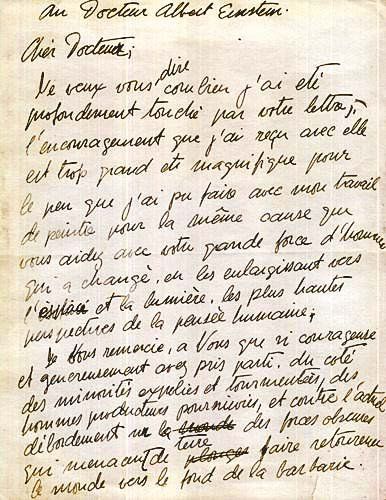 au Docteur Albert Einstein.
Cher Docteur,
Je veux vous dire combien j'ai été
profondement touché par votre lettre;
l'encouragement que j'ai reçu avec elle
est trop grand et magnifique pour
le peu que j'ai pu faire avec mon travail
de peintre pour la même cause que
vous aidez avec votre grande force d'homme
qui a changé, en les enlargissant vers
l' et la lumière, les plus hautes
perspectives de la pensée humaine;
Je Vous remercie, a Vous que si courageuse
et genereusement avez pris parti, du coté
des minorités et tourmentées, des
hommes producteurs poursuivies, et contre l'actuel
débordement sur la terre des forces obscures
qui menacent de faire retourner
le monde vers le fond de la barbarie.